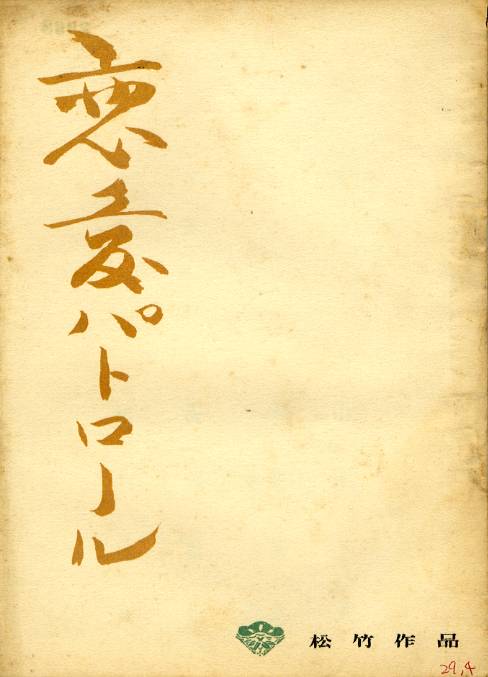 恋愛パトロール
松竹作品
29.4